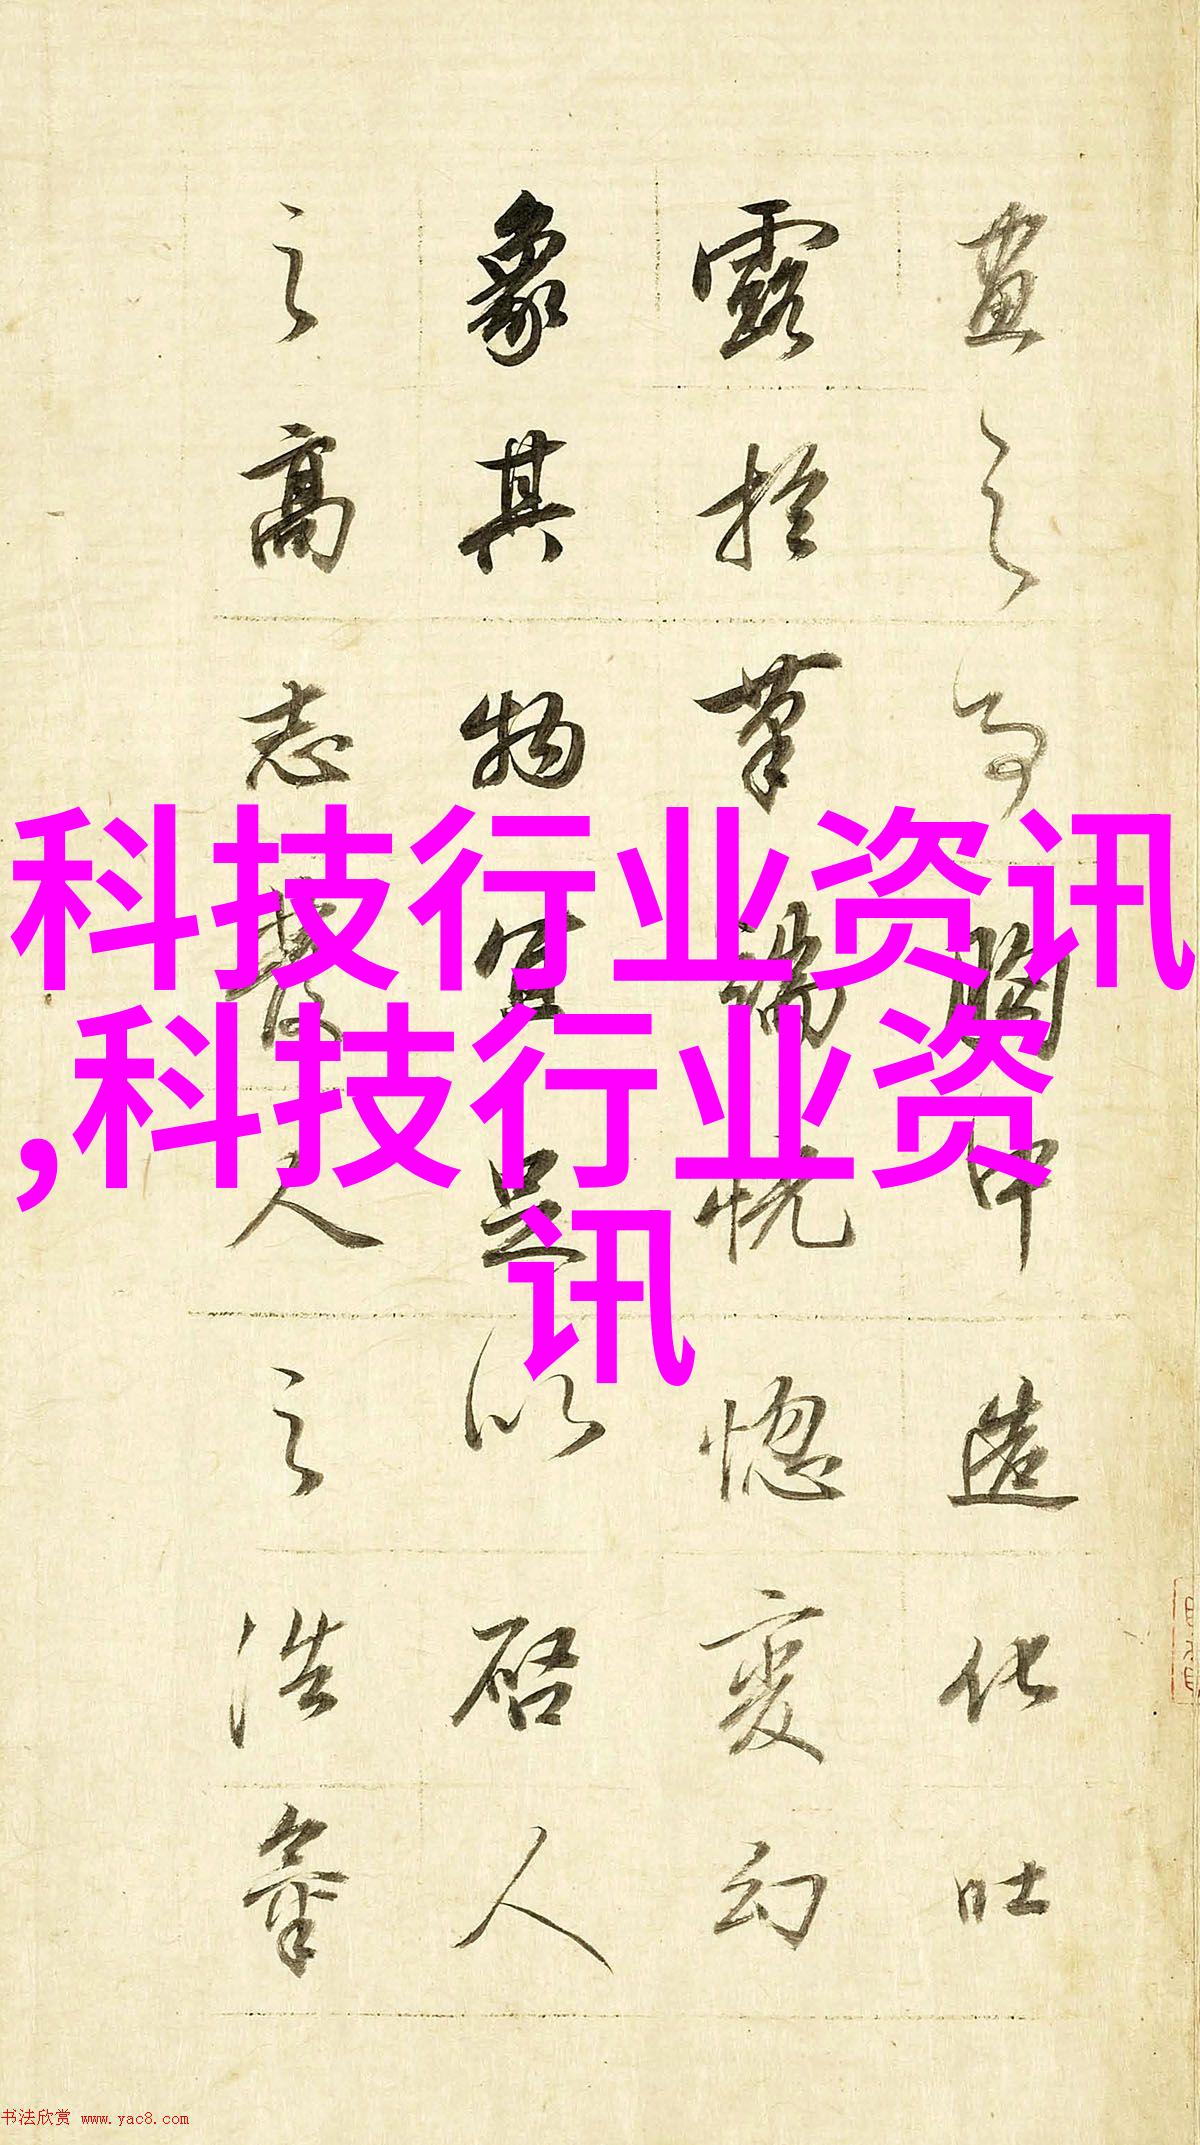 畫之胸中造化吐
露於筆端恍惚變幻
象其物宜足以啓人
之高志發人之浩氣
科技行业资讯
,科技行业资
讯
书法欣赏 www.yac8.com